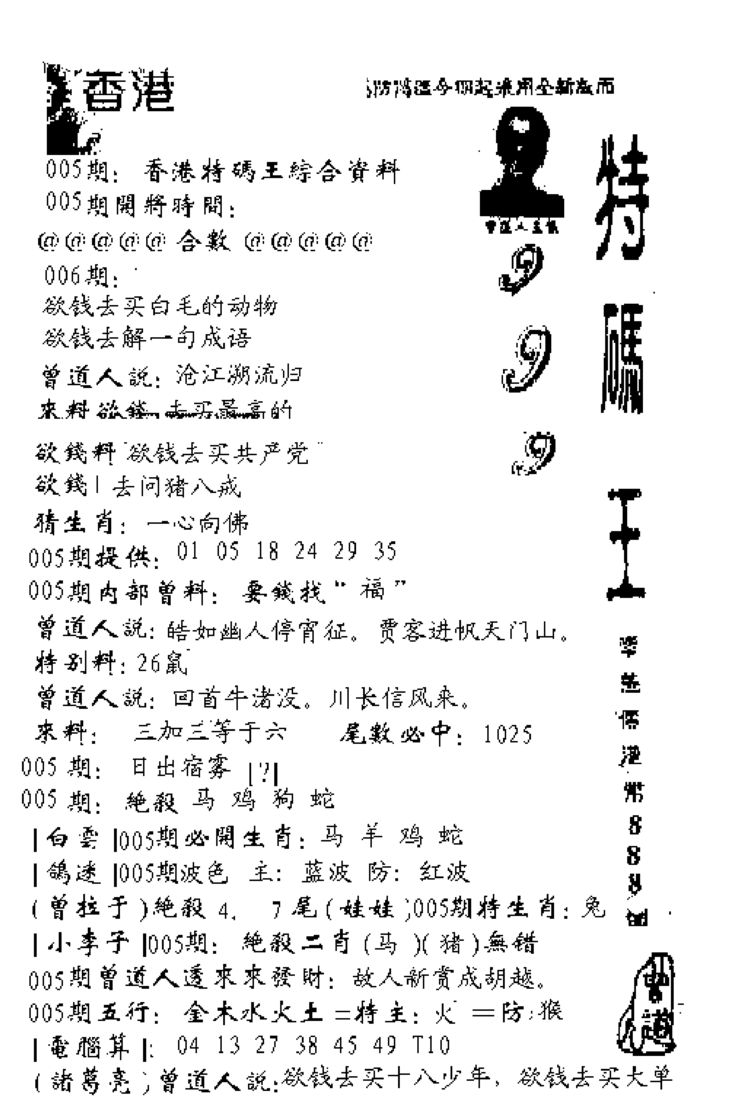 香港
防濫今期起採用全新版面
005期：香港特碼王綜合資料
005期開將時間：
@@@@@ 合數 @@@@@
006期：
欲钱去买白毛的动物
欲钱去解一句成语
曾道人説：沧江溯流归
來料欲錢去买最高的
欲錢料“欲钱去买共产党”
欲錢|去问猪八戒
猜生肖：一心向佛
005期提供：01 05 18 24 29 35
005期内部曾料：要錢找“福”
曾道人説：皓如幽人停宵征。贾客进帆天门山。
特别料：26鼠
曾道人説：回首牛渚没。川长信风来。
來料： 三加三等于六 尾數必中：1025
005期： 日出宿雾 |?|
005期：絶殺 马 鸡 狗 蛇
|白雲|005期必開生肖：马 羊 鸡 蛇
|鴿迷|005期波色 主：蓝波 防：红波
(曾拉于)絶殺4. 7尾(娃娃)005期特生肖：兔
|小李子|005期：絶殺二肖(马)(猪)無错
005期曾道人透來來發財：故人新赏成胡越。
005期五行：金木水火土=特主：火=防:猴
|電腦算|：04 13 27 38 45 49 T10
(諸葛亮)曾道人説:欲钱去买十八少年，欲钱去买大单
999
特碼王
8 8 8
曾道